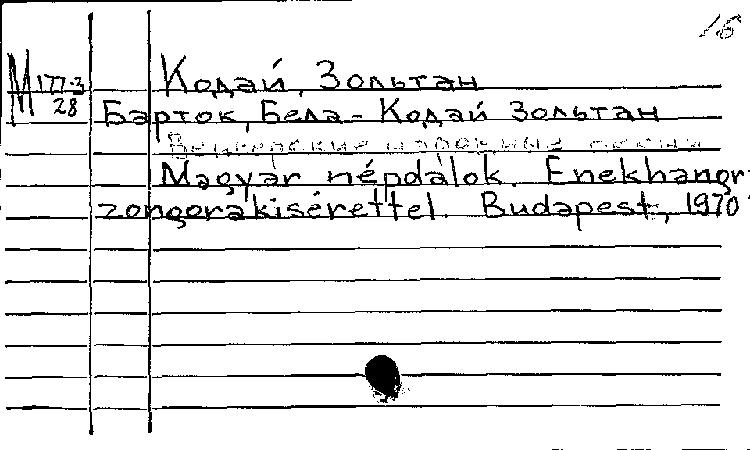 16
М 177-3
28
Кодай, Зольтан
Барток, Бела - Кодай Зольтан
Венгерские народные песни
Magyar népdalok. Enekhangr
zongorakisérettel. Budapest, 1970